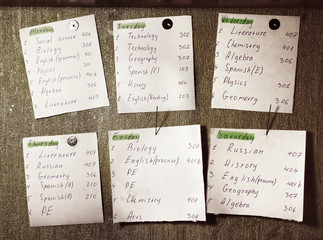 Monday
1 Social science 407
2 Biology 308
3 English (practice) 401b
4 Physics 307
5 English (practice) 401b
6 Algebra 306
7
8 Literature 407
Tuesday
1 Technology 302
2 Technology 302
3 Geography 307
4 Spanish (E) 103
5 History 406
6 English (reading) 203
Wednesday
1 Literature 407
2 Chemistry 401
3 Algebra 306
4 Spanish (E)
5 Physics 307
6 Geometry 306
Thursday
1 Literature 407
2 Russian 407
3 Geometry 306
4 Spanish (A) 210
5 Spanish (A) 210
6 PE
Friday
1 Biology 308
2 English (practice) 401b
3 PE
4 PE
5 Chemistry 401
6 Arts 308
Saturday
1 Russian 407
2 History 406
3 English (practice) 401b
4 Geography 307
5 Algebra 306